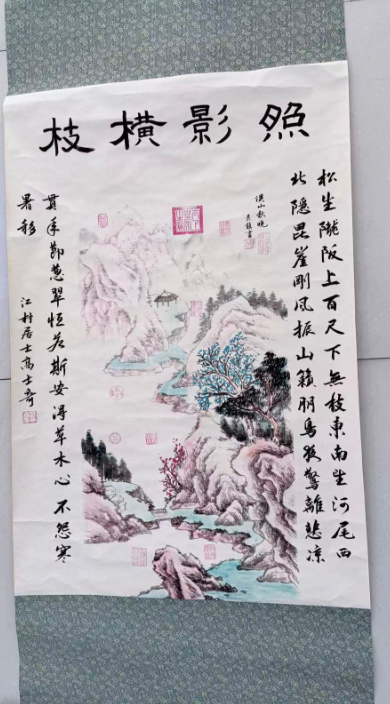 照影橫枝
松生隴阪上百尺下無枝東南望河尾西
北隱崑崖剛風振山籟朋鳥夜驚離悲涼
貫年節葱翠恒若斯安得草木心不怨寒
暑移
江村居士高士奇
溪山秋晚